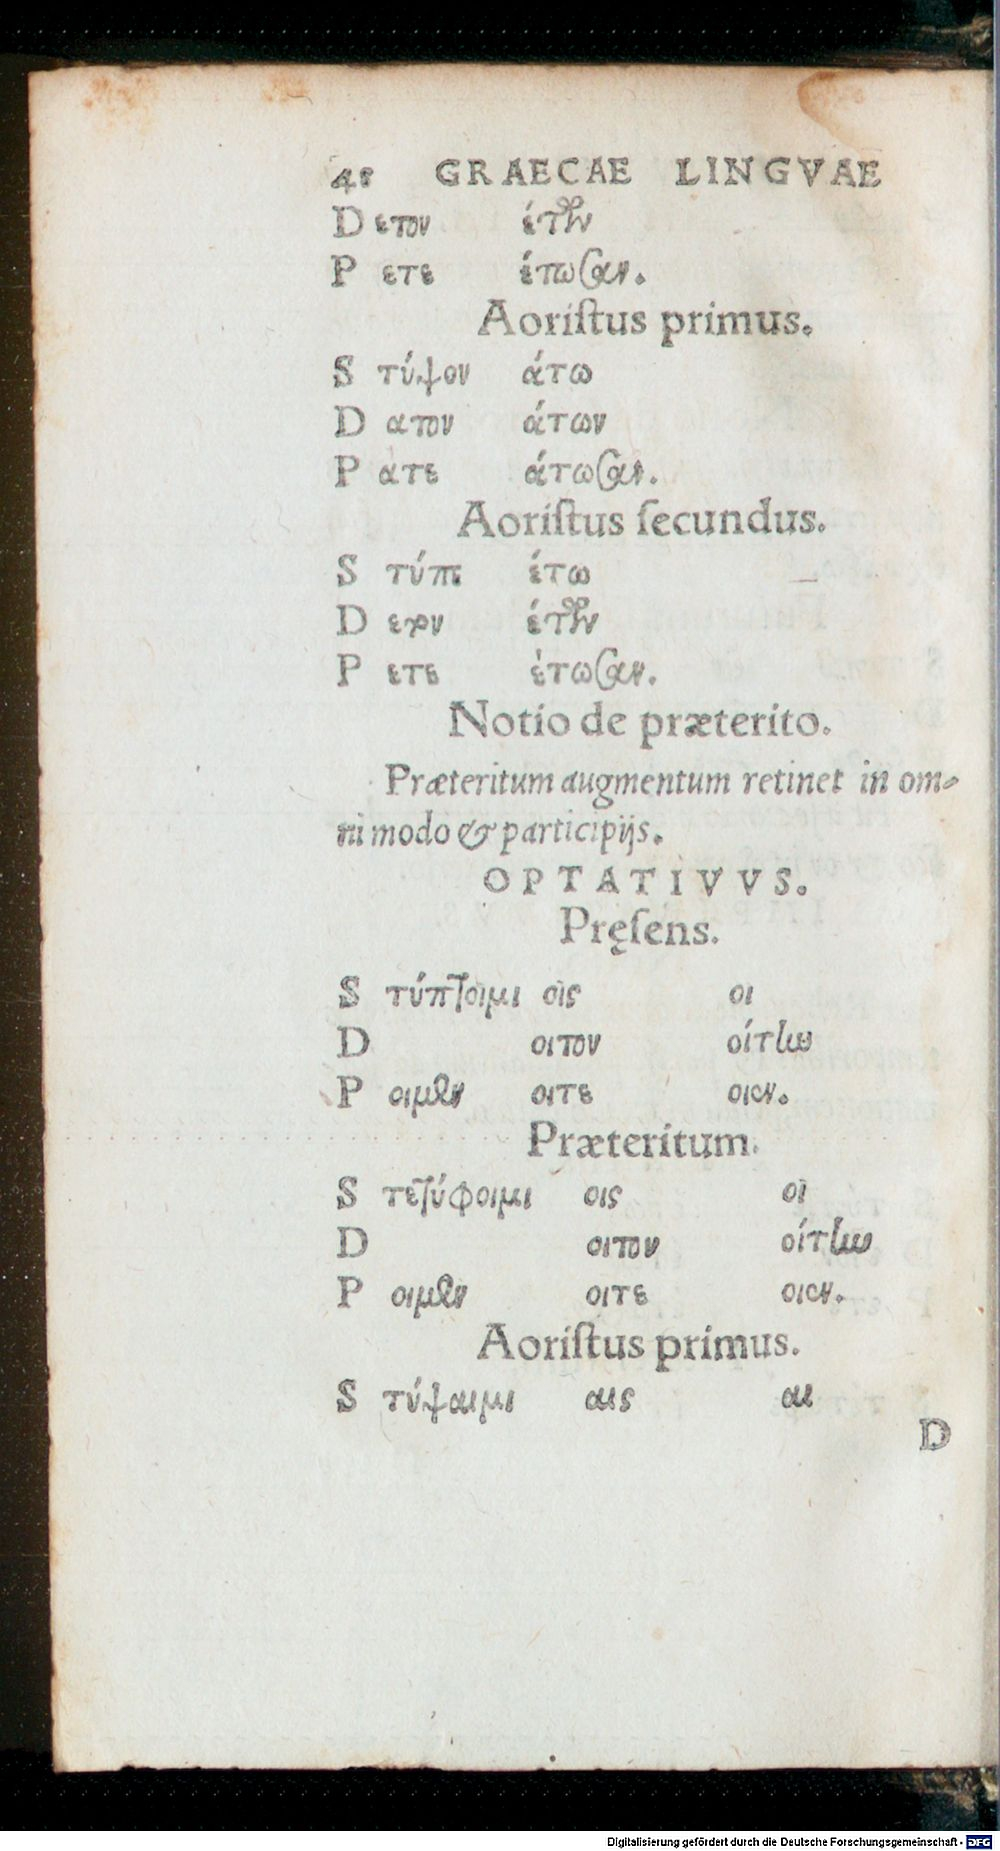 48 GRAECAE LINGVAE
D ετον έτων
P ετε έτωσαν.
Aoriſtus primus.
S τύψον άτω
D ατον άτων
P ατε άτωσαν.
Aoriſtus ſecundus.
S τύπε έτω
D ετον έτων
P ετε έτωσαν.
Notio de præterito.
Præteritum augmentum retinet in om-
ni modo & participijs.
OPTATIVVS.
Pręſens.
S τύπτοιμι οις οι
D οιτον οίτην
P οιμεν οιτε οιεν.
Præteritum.
S τετύφοιμι οις οι
D οιτον οίτην
P οιμεν οιτε οιεν.
Aoriſtus primus.
S τύψαιμι αις αι
D
Digitalisierung gefördert durch die Deutsche Forschungsgemeinschaft - DFG